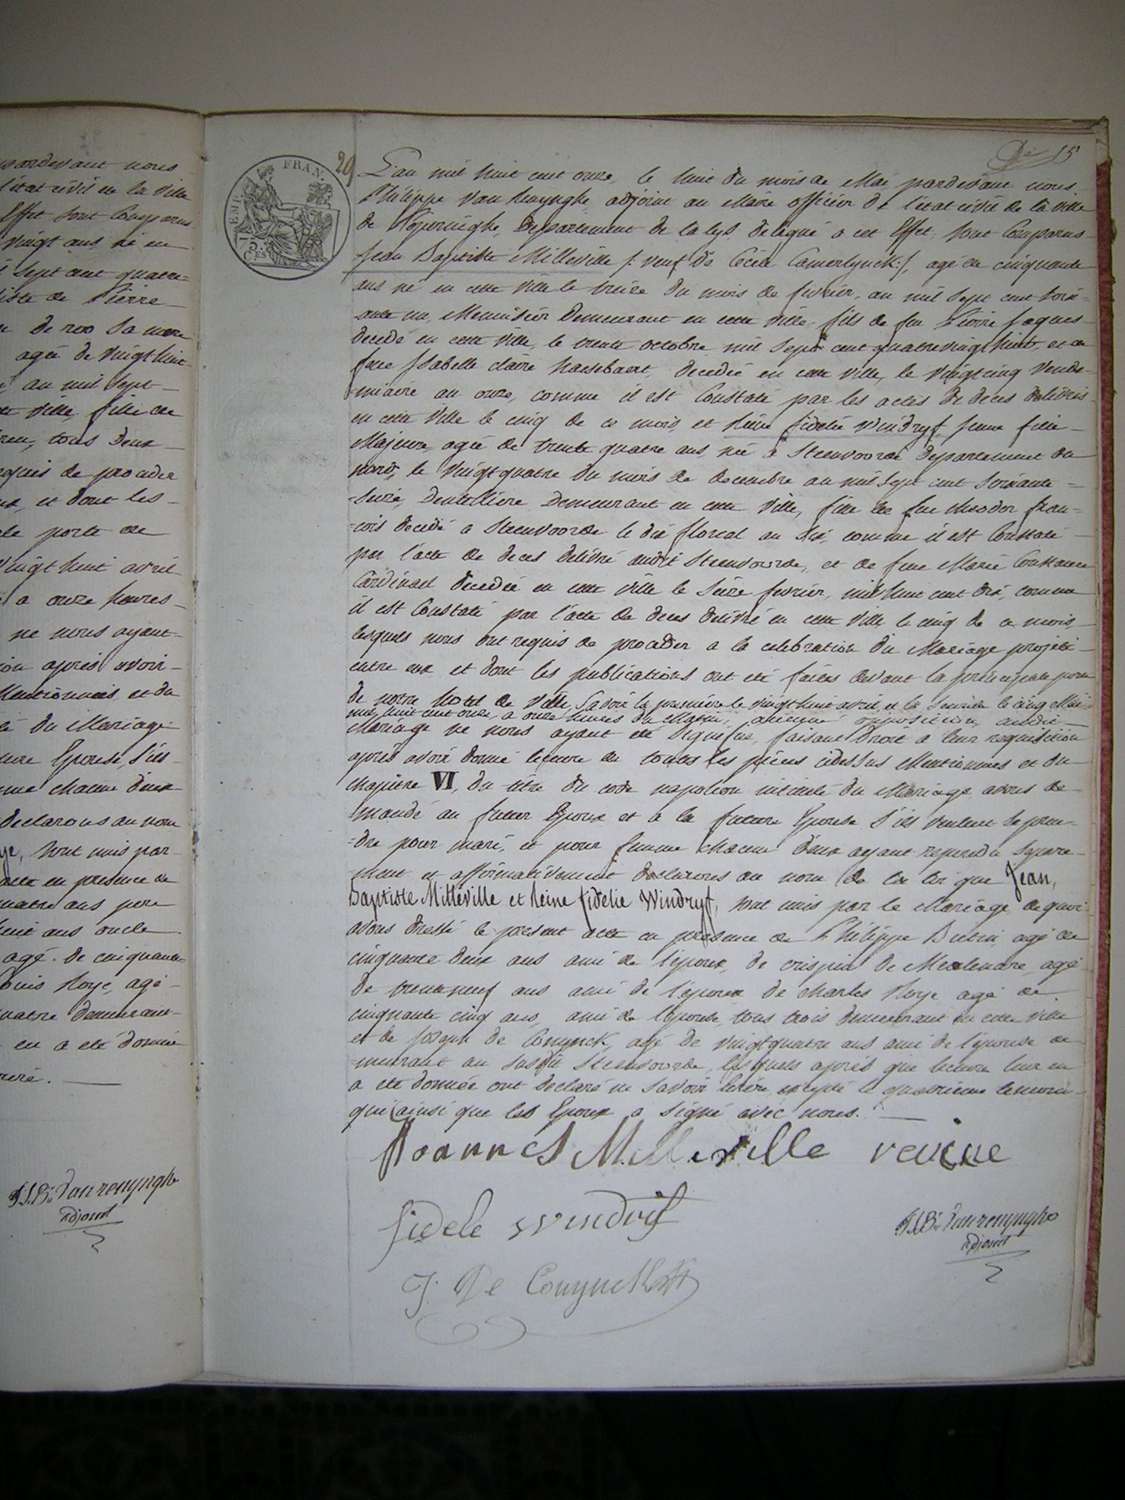 pardevant nous
l'état civil de la ville
Effet sont Comparus
vingt ans né en
sept cent quatre-
de Pierre
de roo sa mere
agée de vingt huit
au mil sept
ville, fille de
tous deux
requis de proceder
eux et dont les
porte de
vingt huit avril
a onze heures
ne nous ayant
après avoir
Mentionnées et du
du Mariage
future Epouse, s'ils
femme chacun d'eux
declarons au nom
sont unis par
acte en presence de
quatre ans pere
ans oncle
agé de cinquante
Louis Roye, agé
quatre demeurant
en a été donnée
J.B. Vanrenynghe
adjoint
TIMB. FRAN.
75 Ces
29
15
L'an mil huit cent onze, le huit du mois de Mai pardevant nous
Philippe Van Renynghe adjoint au Maire officier de l'état civil de la ville
de Poperinghe, Departement de la lys delegué a cet Effet, sont Comparus
Jean Baptiste Milleville /: veuf de Cécile Camerlynck :/, agé de cinquante
ans né en cette ville le treize du mois de fevrier, au mil sept cent soix-
ante un, Menuisier Demeurant en cette ville, fils de feu Pierre Jaques
decedé en cette ville, le trente octobre mil sept cent quatrevingt huit et de
feue Isabelle claire Hasebaert, decedée en cette ville, le vingt cinq vende-
miaire an onze, comme il est Constaté par les actes de deces delivrés
en cette ville le cinq de ce mois et Reine fidelie Windryf jeune fille
Majeure agée de trente quatre ans née à Steenvoorde departement du
nord, le vingtquatre du mois de decembre au mil sept cent soixante-
seize, Dentellière Demeurant en cette ville, fille de feu theodor fran-
çois decedé a Steenvoorde le dix floreal an dix, comme il est Constaté
par l'acte de deces delivré audit Steenvoorde, et de feue Marie Constance
Cardinael decedée en cette ville le seize fevrier, mil huit cent dix, comme
il est Constaté par l'acte de deces delivré en cette ville le cinq de ce mois
lesquels nous ont requis de proceder a la celebration du Mariage projeté
entre eux et dont les publications ont été faites devant la principale porte
de notre Hotel de Ville, savoir la première le vingt huit avril, et la seconde le cinq Mai
mil huit cent onze, a onze heures du Matin, aucune opposition audit
Mariage ne nous ayant été signifiée, faisant Droit a leur requisition
après avoir donné lecture de toutes les pièces cidessus Mentionnées et du
chapitre VI, du titre du code napoléon intitulé du Mariage avons de-
mandé au futur Epoux et a la future Epouse s'ils veulent se pren-
dre pour mari, et pour femme chacun d'eux ayant repondu separe-
ment et affirmativement declarons au nom de la loi que Jean
Baptiste Milleville et Reine fidelie Windryf, sont unis par le Mariage de quoi
avons dressé le present acte en presence de Philippe Butin agé de
cinquante deux ans ami de l'époux, de crispin de Meulenare, agé
de trenteneuf ans ami de l'époux de Charles Roye agé de
cinquante cinq ans, ami de l'Epouse, tous trois demeurant en cette ville
et de Joseph de Conynck, agé de vingtquatre ans ami de l'épouse de-
meurant au susdit Steenvoorde, lesquels après que lecture leur en
a été donnée ont declaré ne savoir écrire, excepté le quatrieme temoin
qui ainsi que les Epoux a signé avec nous.
Joannes Milleville reine
fidele windrif
J.B. Vanrenynghe
adjoint
J. De Conynck